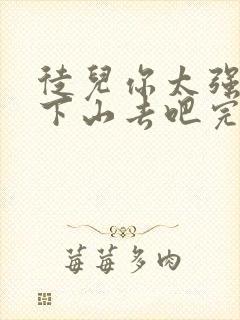 徒兒你太强
下山去吧完
莓莓多肉